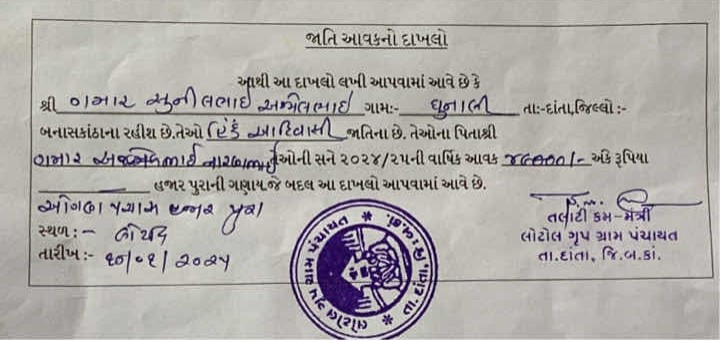 જાતિ આવકનો દાખલો
આથી આ દાખલો લખી આપવામાં આવે છે કે
શ્રી ગમાર સુનીલભાઈ ગામ:- ધુનાલી તા:-દાંતા,જિલ્લો:-
બનાસકાંઠાના રહીશ છે.તેઓ હિંદુ આદિવાસી જાતિના છે. તેઓના પિતાશ્રી
ગમાર ઓની સને ૨૦૨૪/૨૫ની વાર્ષિક આવક ૪૯૦૦૦/- અંકે રૂપિયા
હજાર પુરાની ગણાય.જે બદલ આ દાખલો આપવામાં આવે છે.
ઓગણ પચાસ હજાર પુરા
સ્થળ:-
તારીખ:- ૧૦/૦૧/૨૦૨૫
તલાટી કમ-મંત્રી
લોટોલ ગૃપ ગ્રામ પંચાયત
તા.દાંતા, જિ.બ.કાં.
લોટોલ ગૃપ ગ્રામ પંચાયત * તા. દાંતા, જી.બ.કાં. *